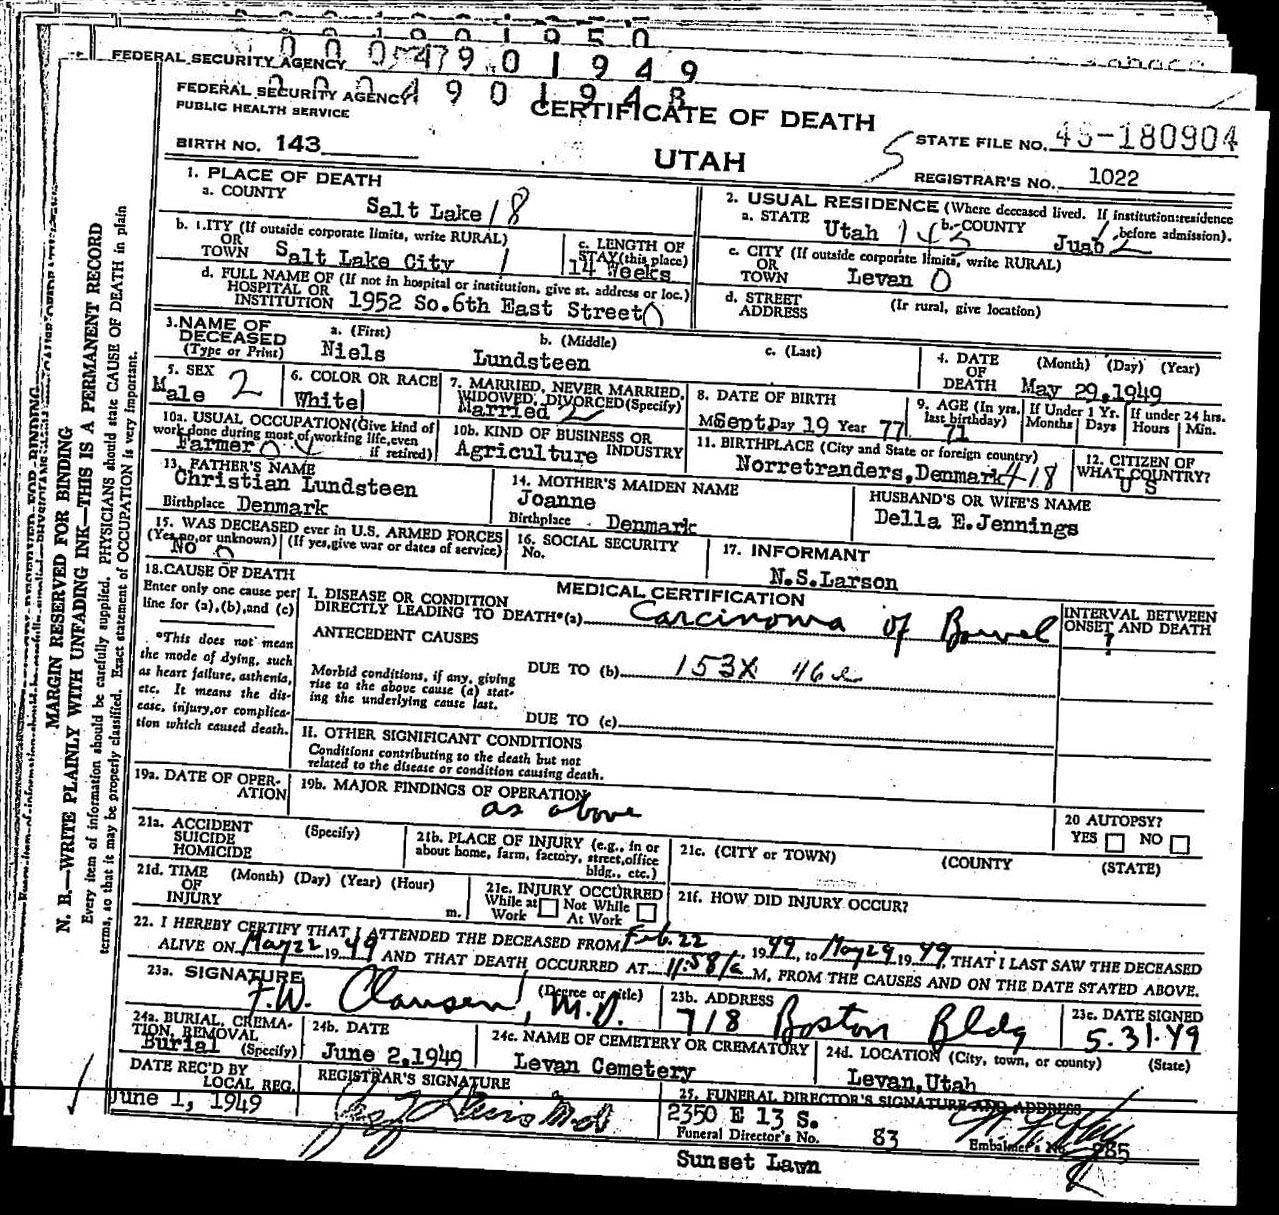 FEDERAL SECURITY AGENCY
FEDERAL SECURITY AGENCY
PUBLIC HEALTH SERVICE
CERTIFICATE OF DEATH
BIRTH NO. 143
UTAH
STATE FILE NO. 49-180904
REGISTRAR'S NO. 1022
1. PLACE OF DEATH
a. COUNTY
Salt Lake 18
b. CITY (If outside corporate limits, write RURAL)
OR
TOWN Salt Lake City 1
c. LENGTH OF
STAY (this place)
14 Weeks
d. FULL NAME OF (If not in hospital or institution, give st. address or loc.)
HOSPITAL OR
INSTITUTION 1952 So.6th East Street
2. USUAL RESIDENCE (Where deceased lived. If institution:residence
before admission).
a. STATE Utah
b. COUNTY Juab
c. CITY (If outside corporate limits, write RURAL)
OR
TOWN Levan 0
d. STREET
ADDRESS
(Ir rural, give location)
3. NAME OF
DECEASED
(Type or Print)
a. (First)
Niels
b. (Middle)
Lundsteen
c. (Last)
4. DATE
OF
DEATH
(Month) (Day) (Year)
May 29,1949
5. SEX
Male 2
6. COLOR OR RACE
White
7. MARRIED, NEVER MARRIED,
WIDOWED, DIVORCED (Specify)
Married
8. DATE OF BIRTH
M Sept Day 19 Year 77
9. AGE (In yrs.
last birthday)
71
If Under 1 Yr.
Months Days
If under 24 hrs.
Hours Min.
10a. USUAL OCCUPATION (Give kind of
work done during most of working life, even
if retired)
Farmer
10b. KIND OF BUSINESS OR
INDUSTRY
Agriculture
11. BIRTHPLACE (City and State or foreign country)
Norretranders,Denmark 418
12. CITIZEN OF
WHAT COUNTRY?
U S
13. FATHER'S NAME
Christian Lundsteen
Birthplace Denmark
14. MOTHER'S MAIDEN NAME
Joanne
Birthplace Denmark
HUSBAND'S OR WIFE'S NAME
Della E.Jennings
15. WAS DECEASED ever in U.S. ARMED FORCES
(Yes,no,or unknown) (If yes,give war or dates of service)
No 0
16. SOCIAL SECURITY
No.
17. INFORMANT
N.S.Larson
18. CAUSE OF DEATH
Enter only one cause per
line for (a),(b),and (c)
*This does not mean
the mode of dying, such
as heart failure, asthenia,
etc. It means the dis-
ease, injury,or complica-
tion which caused death.
MEDICAL CERTIFICATION
I. DISEASE OR CONDITION
DIRECTLY LEADING TO DEATH*(a) Carcinoma of Bowel
INTERVAL BETWEEN
ONSET AND DEATH
?
ANTECEDENT CAUSES
Morbid conditions, if any, giving
rise to the above cause (a) stat-
ing the underlying cause last.
DUE TO (b) 153X 46
DUE TO (c)
II. OTHER SIGNIFICANT CONDITIONS
Conditions contributing to the death but not
related to the disease or condition causing death.
19a. DATE OF OPER-
ATION
19b. MAJOR FINDINGS OF OPERATION
as above
20 AUTOPSY?
YES NO
21a. ACCIDENT
SUICIDE
HOMICIDE
(Specify)
21b. PLACE OF INJURY (e.g., in or
about home, farm, factory, street,office
bldg., etc.)
21c. (CITY or TOWN) (COUNTY (STATE)
21d. TIME (Month) (Day) (Year) (Hour)
OF
INJURY m.
21e. INJURY OCCURRED
While at Not While
Work At Work
21f. HOW DID INJURY OCCUR?
22. I HEREBY CERTIFY THAT I ATTENDED THE DECEASED FROM Feb. 22, 1949, to May 29 1949, THAT I LAST SAW THE DECEASED
ALIVE ON May 22 1949 AND THAT DEATH OCCURRED AT 11:58 M, FROM THE CAUSES AND ON THE DATE STATED ABOVE.
23a. SIGNATURE
F.W. Clausen, M.D.
(Degree or title)
23b. ADDRESS
718 Boston Bldg
23c. DATE SIGNED
5.31.49
24a. BURIAL, CREMA-
TION, REMOVAL
Burial (Specify)
24b. DATE
June 2,1949
24c. NAME OF CEMETERY OR CREMATORY
Levan Cemetery
24d. LOCATION (City, town, or county) (State)
Levan,Utah
DATE REC'D BY
LOCAL REG.
June 1, 1949
REGISTRAR'S SIGNATURE
25. FUNERAL DIRECTOR'S SIGNATURE AND ADDRESS
2350 E 13 S.
Funeral Director's No. 83
Embalmer's No. 285
Sunset Lawn
MARGIN RESERVED FOR BINDING
N. B.—WRITE PLAINLY WITH UNFADING INK—THIS IS A PERMANENT RECORD
Every item of information should be carefully supplied. PHYSICIANS should state CAUSE OF DEATH in plain
terms, so that it may be properly classified. Exact statement of OCCUPATION is very important.